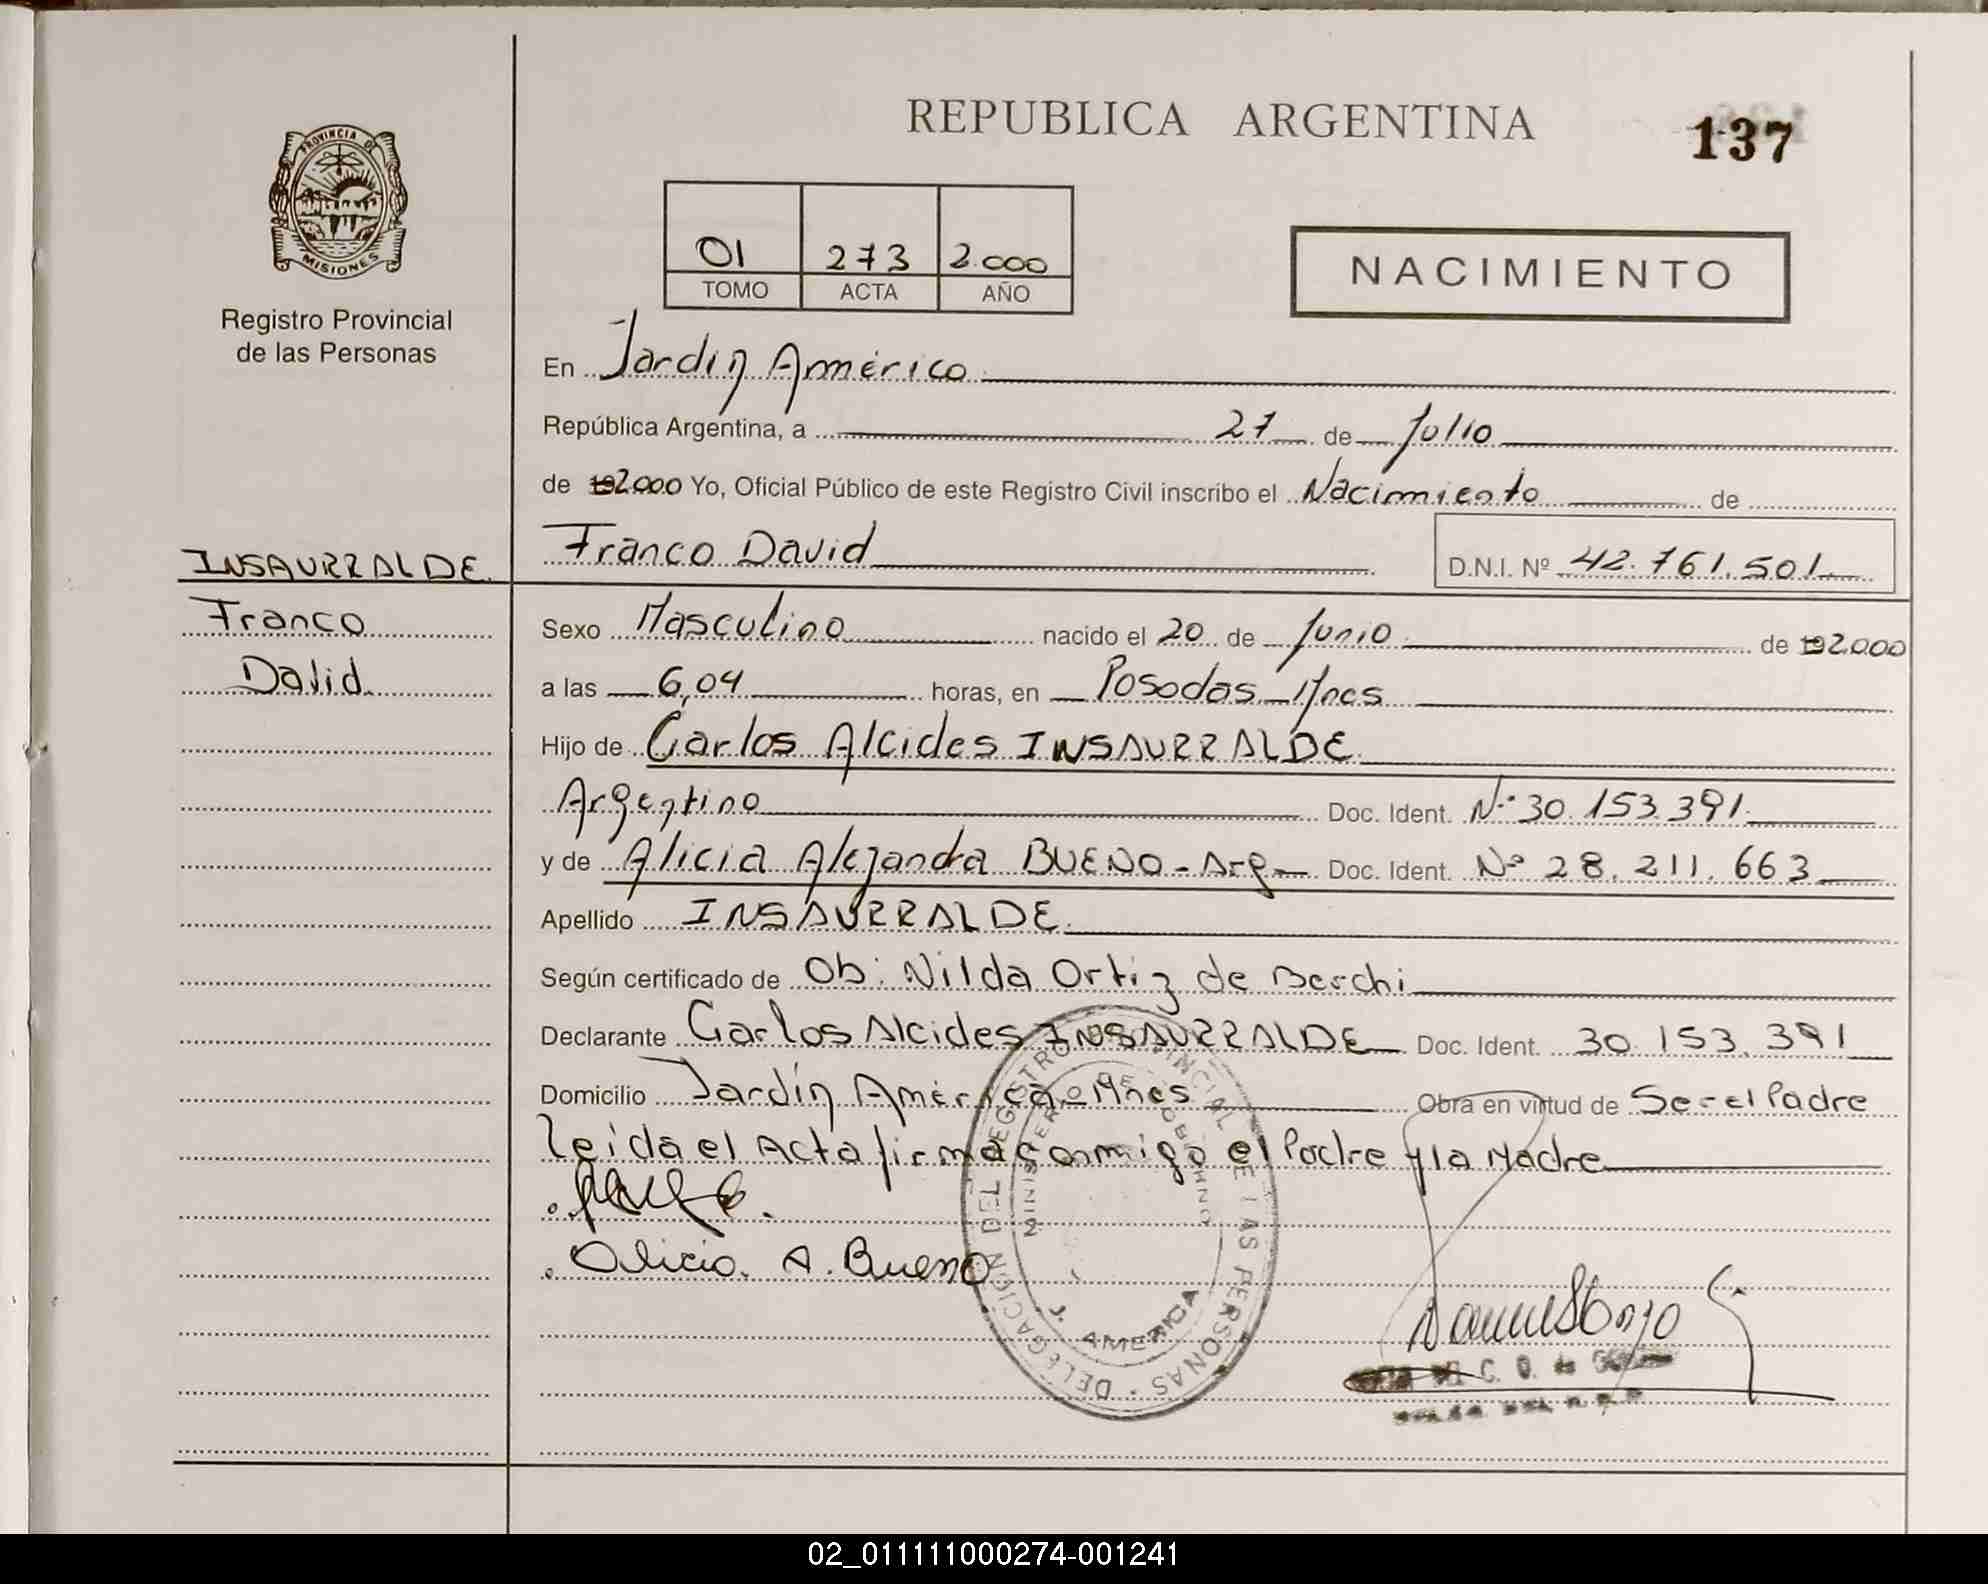 REPUBLICA ARGENTINA
137
PROVINCIA DE
MISIONES
Registro Provincial
de las Personas
01 273 2.000
TOMO ACTA AÑO
NACIMIENTO
En Jardín América
República Argentina, a 27 de Julio
de 192.000 Yo, Oficial Público de este Registro Civil inscribo el Nacimiento de
INSAURRALDE
Franco David
D.N.I. Nº 42.761.501
Franco
David
Sexo Masculino nacido el 20 de Junio de 192.000
a las 6,04 horas, en Posadas - Mnes
Hijo de Carlos Alcides INSAURRALDE
Argentino Doc. Ident. Nº 30.153.391
y de Alicia Alejandra BUENO - Arg. Doc. Ident. Nº 28.211.663
Apellido INSAURRALDE
Según certificado de Ob: Nilda Ortiz de
Declarante Carlos Alcides INSAURRALDE Doc. Ident. 30.153.391
Domicilio Jardín América - Mnes Obra en virtud de Ser el Padre
Leída el Acta firma conmigo el Padre y la Madre
Alicia A. Bueno
DELEGACIÓN DEL REGISTRO PROVINCIAL DE LAS PERSONAS
MINISTERIO DE GOBIERNO
J. AMERICA
02_011111000274-001241